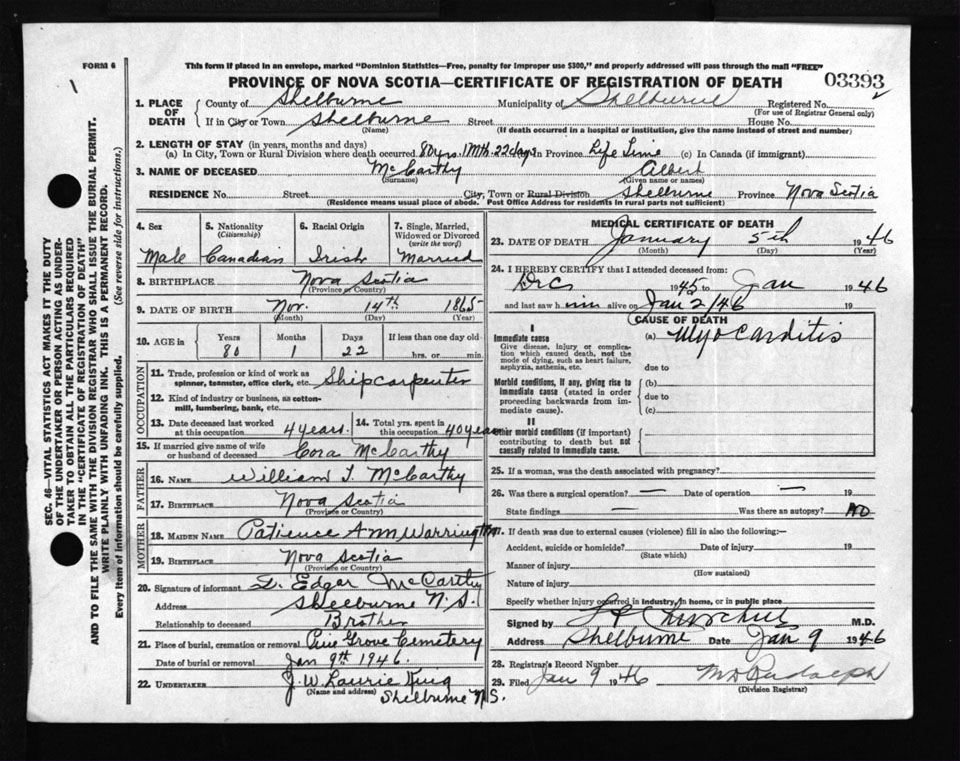 FORM 6
This form if placed in an envelope, marked "Dominion Statistics—Free, penalty for improper use $300," and properly addressed will pass through the mail "FREE"
PROVINCE OF NOVA SCOTIA—CERTIFICATE OF REGISTRATION OF DEATH
03393
1. PLACE OF DEATH
County of Shelburne Municipality of Shelburne Registered No.
(For use of Registrar General only)
If in City or Town Shelburne Street House No.
(Name) (If death occurred in a hospital or institution, give the name instead of street and number)
2. LENGTH OF STAY (in years, months and days)
(a) In City, Town or Rural Division where death occurred 80 yrs. 1 Mth. 22 days In Province Life Time (c) In Canada (if immigrant)
3. NAME OF DECEASED McCarthy Albert
(Surname) (Given name or names)
RESIDENCE No. Street City, Town or Rural Division Shelburne Province Nova Scotia
(Residence means usual place of abode. Post Office Address for residents in rural parts not sufficient)
4. Sex
Male
5. Nationality
(Citizenship)
Canadian
6. Racial Origin
Irish
7. Single, Married,
Widowed or Divorced
(write the word)
Married
8. BIRTHPLACE Nova Scotia
(Province or Country)
9. DATE OF BIRTH Nov. 14th 1865
(Month) (Day) (Year)
10. AGE in
Years Months Days If less than one day old
80 1 22 hrs. or min.
OCCUPATION
11. Trade, profession or kind of work as
spinner, teamster, office clerk, etc. Ship carpenter
12. Kind of industry or business, as cotton-
mill, lumbering, bank, etc.
13. Date deceased last worked
at this occupation 4 years.
14. Total yrs. spent in
this occupation 40 years
15. If married give name of wife
or husband of deceased Cora McCarthy
FATHER
16. NAME William T. McCarthy
17. BIRTHPLACE Nova Scotia
(Province or Country)
MOTHER
18. MAIDEN NAME Patience Ann Warrington
19. BIRTHPLACE Nova Scotia
(Province or Country)
20. Signature of informant L. Edgar McCarthy
Address Shelburne N.S.
Relationship to deceased Brother
21. Place of burial, cremation or removal Pine Grove Cemetery
Date of burial or removal Jan 9th 1946.
22. UNDERTAKER J. W. Laurie King
(Name and address) Shelburne N.S.
MEDICAL CERTIFICATE OF DEATH
23. DATE OF DEATH January 5th 1946
(Month) (Day) (Year)
24. I HEREBY CERTIFY that I attended deceased from:
Dec 1945 to Jan 1946
and last saw him alive on Jan 2/46 19
CAUSE OF DEATH
I
Immediate cause
Give disease, injury or complica-
tion which caused death, not the
mode of dying, such as heart failure,
asphyxia, asthenia, etc.
(a) Myocarditis
due to
Morbid conditions, if any, giving rise to
immediate cause (stated in order
proceeding backwards from im-
mediate cause).
(b)
due to
(c)
II
Other morbid conditions (if important)
contributing to death but not
causally related to immediate cause.
25. If a woman, was the death associated with pregnancy?
26. Was there a surgical operation? — Date of operation — 19
State findings — Was there an autopsy? NO
27. If death was due to external causes (violence) fill in also the following:—
Accident, suicide or homicide? Date of injury 19
(State which)
Manner of injury
(How sustained)
Nature of injury
Specify whether injury occurred in industry, in home, or in public place
Signed by Churchill M.D.
Address Shelburne Date Jan 9 1946
28. Registrar's Record Number
29. Filed Jan 9 1946 Rudolph
(Division Registrar)
SEC. 46—VITAL STATISTICS ACT MAKES IT THE DUTY
OF THE UNDERTAKER OR PERSON ACTING AS UNDER-
TAKER TO OBTAIN ALL THE PARTICULARS REQUIRED
IN THE "CERTIFICATE OF REGISTRATION OF DEATH"
AND TO FILE THE SAME WITH THE DIVISION REGISTRAR WHO SHALL ISSUE THE BURIAL PERMIT.
WRITE PLAINLY WITH UNFADING INK. THIS IS A PERMANENT RECORD.
Every item of information should be carefully supplied. (See reverse side for instructions.)